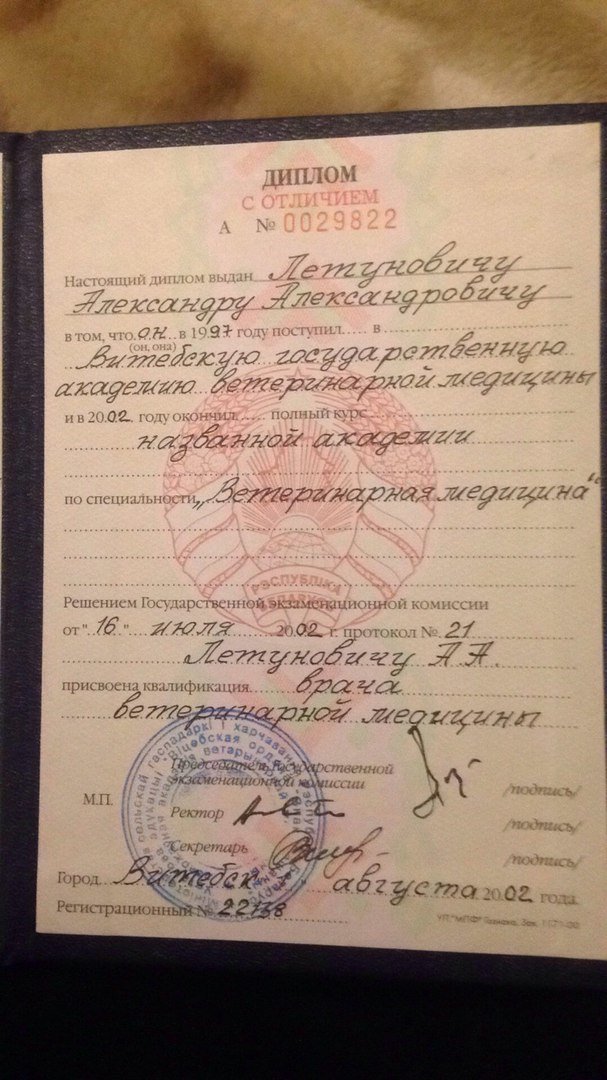 ДИПЛОМ
С ОТЛИЧИЕМ
А № 0029822
Настоящий диплом выдан Летуновичу
Александру Александровичу
в том, что он в 1997 году поступил в
(он, она)
Витебскую государственную
академию ветеринарной медицины
и в 2002 году окончил полный курс
названной академии
по специальности „Ветеринарная медицина“
РЭСПУБЛІКА
БЕЛАРУСЬ
Решением Государственной экзаменационной комиссии
от "16" июля 2002 г. протокол № 21
Летуновичу А.А.
присвоена квалификация врача
ветеринарной медицины
Председатель Государственной
экзаменационной комиссии /подпись/
М.П. Ректор /подпись/
Секретарь /подпись/
Город Витебск августа 2002 года.
Регистрационный № 22138